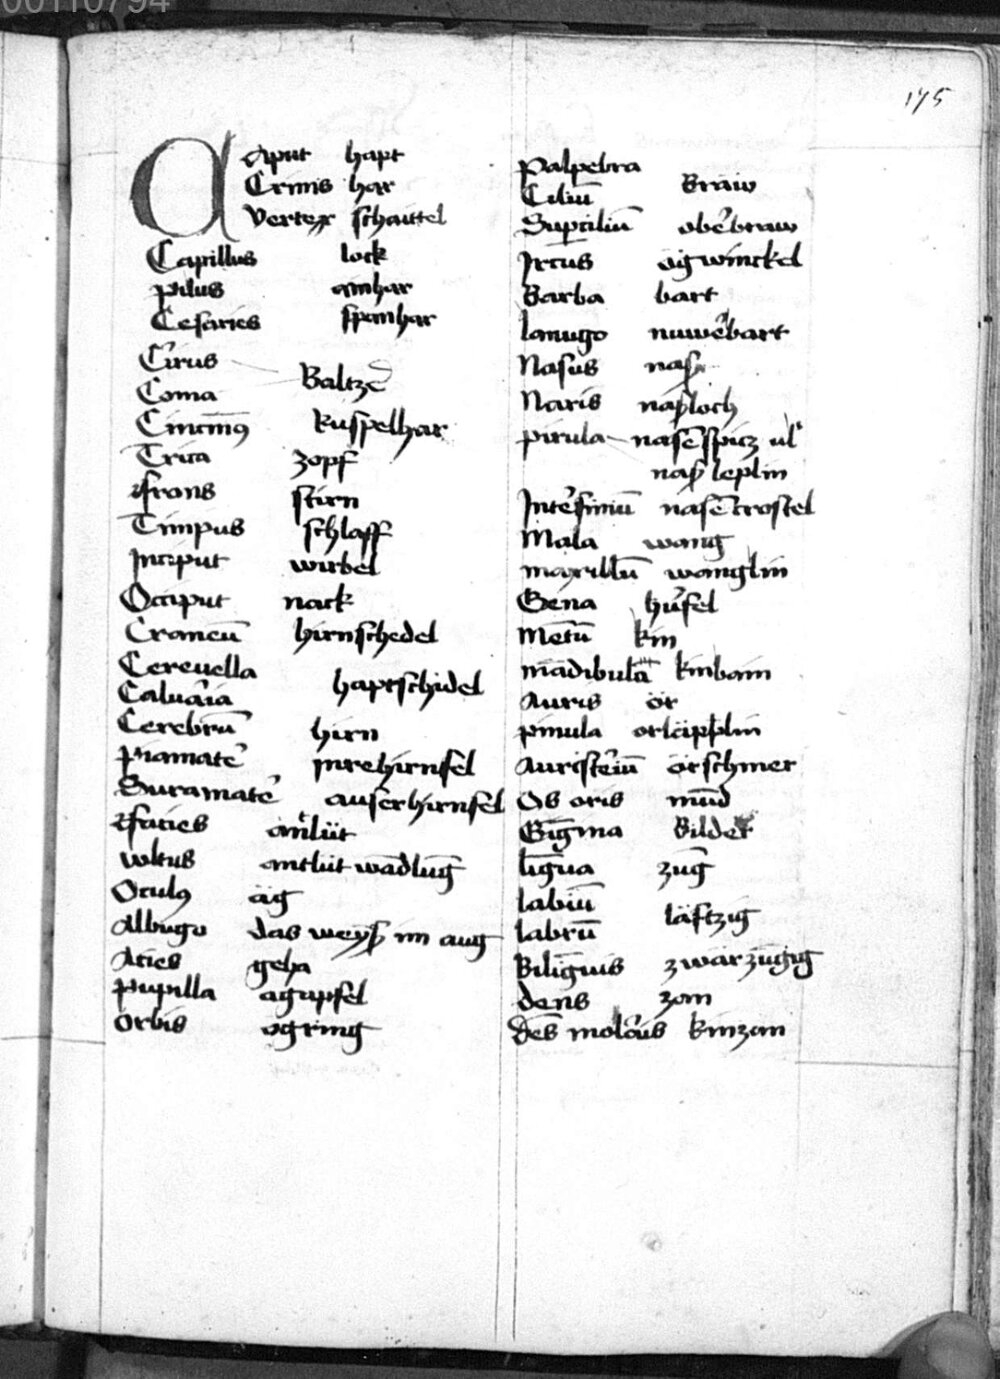 00110794
175
Caput hapt
Crinis har
Vertex schaittel
Capillus lock
pilus ainhar
Cesaries spanhar
Cirus
Baltzer
Coma
Cincinnꝰ kruspelhar
Trica zopf
Frons stirn
Timpus schlaff
Inciput wirbel
Occiput nack
Craneū hirnschedel
Cerenella
haptschidel
Caluaria
Cerebrū hirn
Piamater inrehirnfel
Duramater auserhirnfel
Facies anlüt
wltus antlüt wādlūg
Oculꝰ äg
Albugo das weyß im aug
Acies geha
Pupilla agapfel
Orbis ogring
Palpebra
Braw
Ciliū
Supciliū oberbraw
Ircus ogwinckel
Barba bart
lanugo nuwebart
Nasus nasz
Naris nasloch
pirula nasēspicz ul
nasz leplin
Intersiniū nasēcrostel
Mala wang
maxillū wanglin
Gena hüfel
Mētū kin
mādibula kinbain
Auris ör
pinula orläpplin
Auristeriū örschmer
Os oris mūd
Gīgina Bilder
līgua zūg
labiū
läftzig
labrū
Biliguis zwärzūgig
dens zan
dēs molaris kinzan